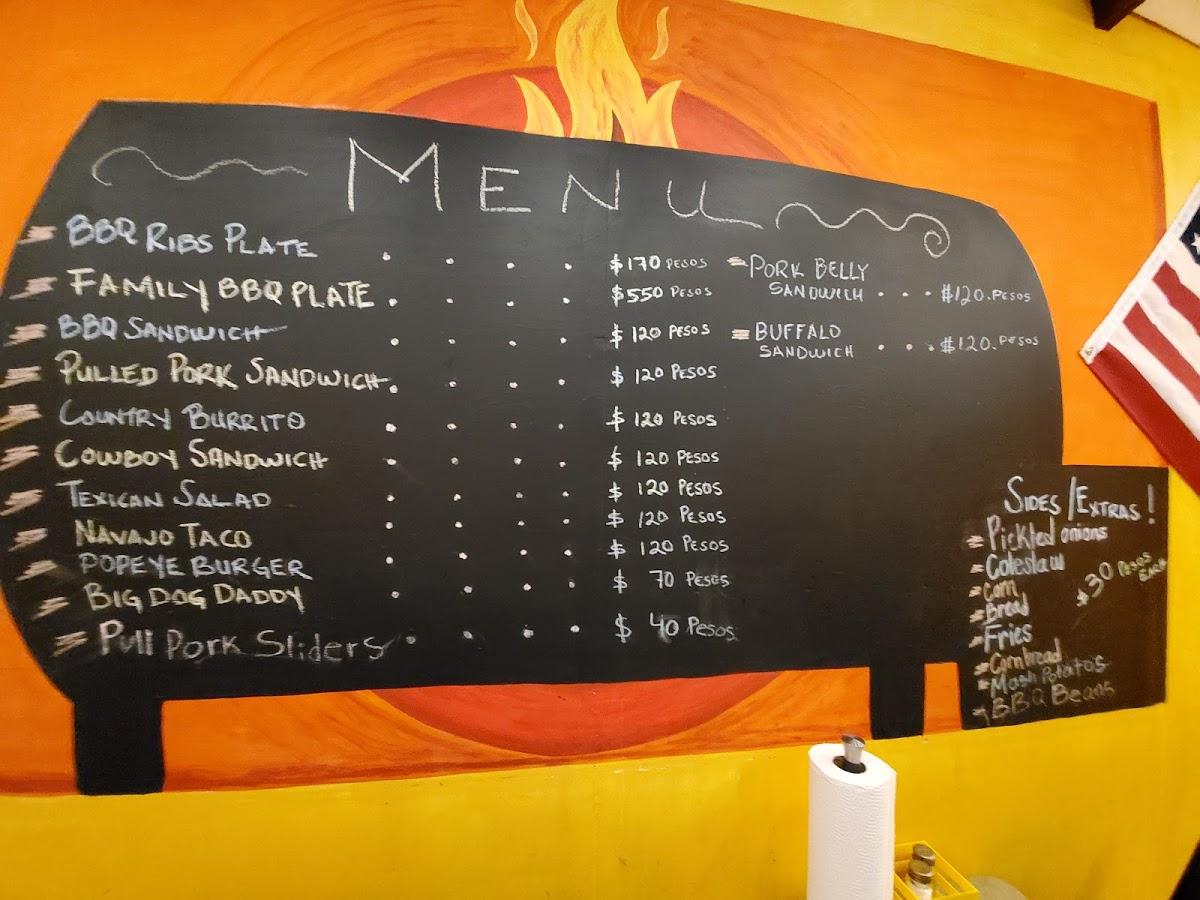 MENU
BBQ RIBS PLATE . . . . $170 PESOS
FAMILY BBQ PLATE . . . . $550 PESOS
BBQ SANDWICH . . . . $120 PESOS
PULLED PORK SANDWICH . . . . $120 PESOS
COUNTRY BURRITO . . . . $120 PESOS
COWBOY SANDWICH . . . . $120 PESOS
TEXICAN SALAD . . . . $120 PESOS
NAVAJO TACO . . . . $120 PESOS
POPEYE BURGER . . . . $120 PESOS
BIG DOG DADDY . . . . $70 PESOS
Pull Pork Sliders . . . . $40 Pesos
PORK BELLY
SANDWICH . . . $120.PESOS
BUFFALO
SANDWICH . . . $120.PESOS
SIDES/EXTRAS!
Pickled onions
Coleslaw
Corn
Bread
Fries
Cornbread
Mash Potato's
BBQ Beans
$30 PESOS
EACH